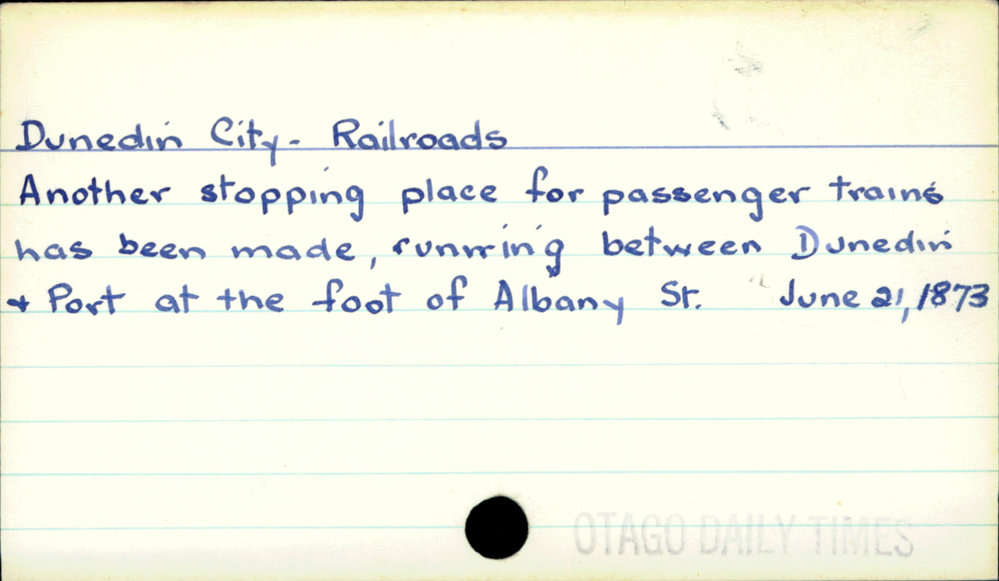 Dunedin City - Railroads
Another stopping place for passenger trains
has been made, running between Dunedin
& Port at the foot of Albany St. June 21, 1873
OTAGO DAILY TIMES